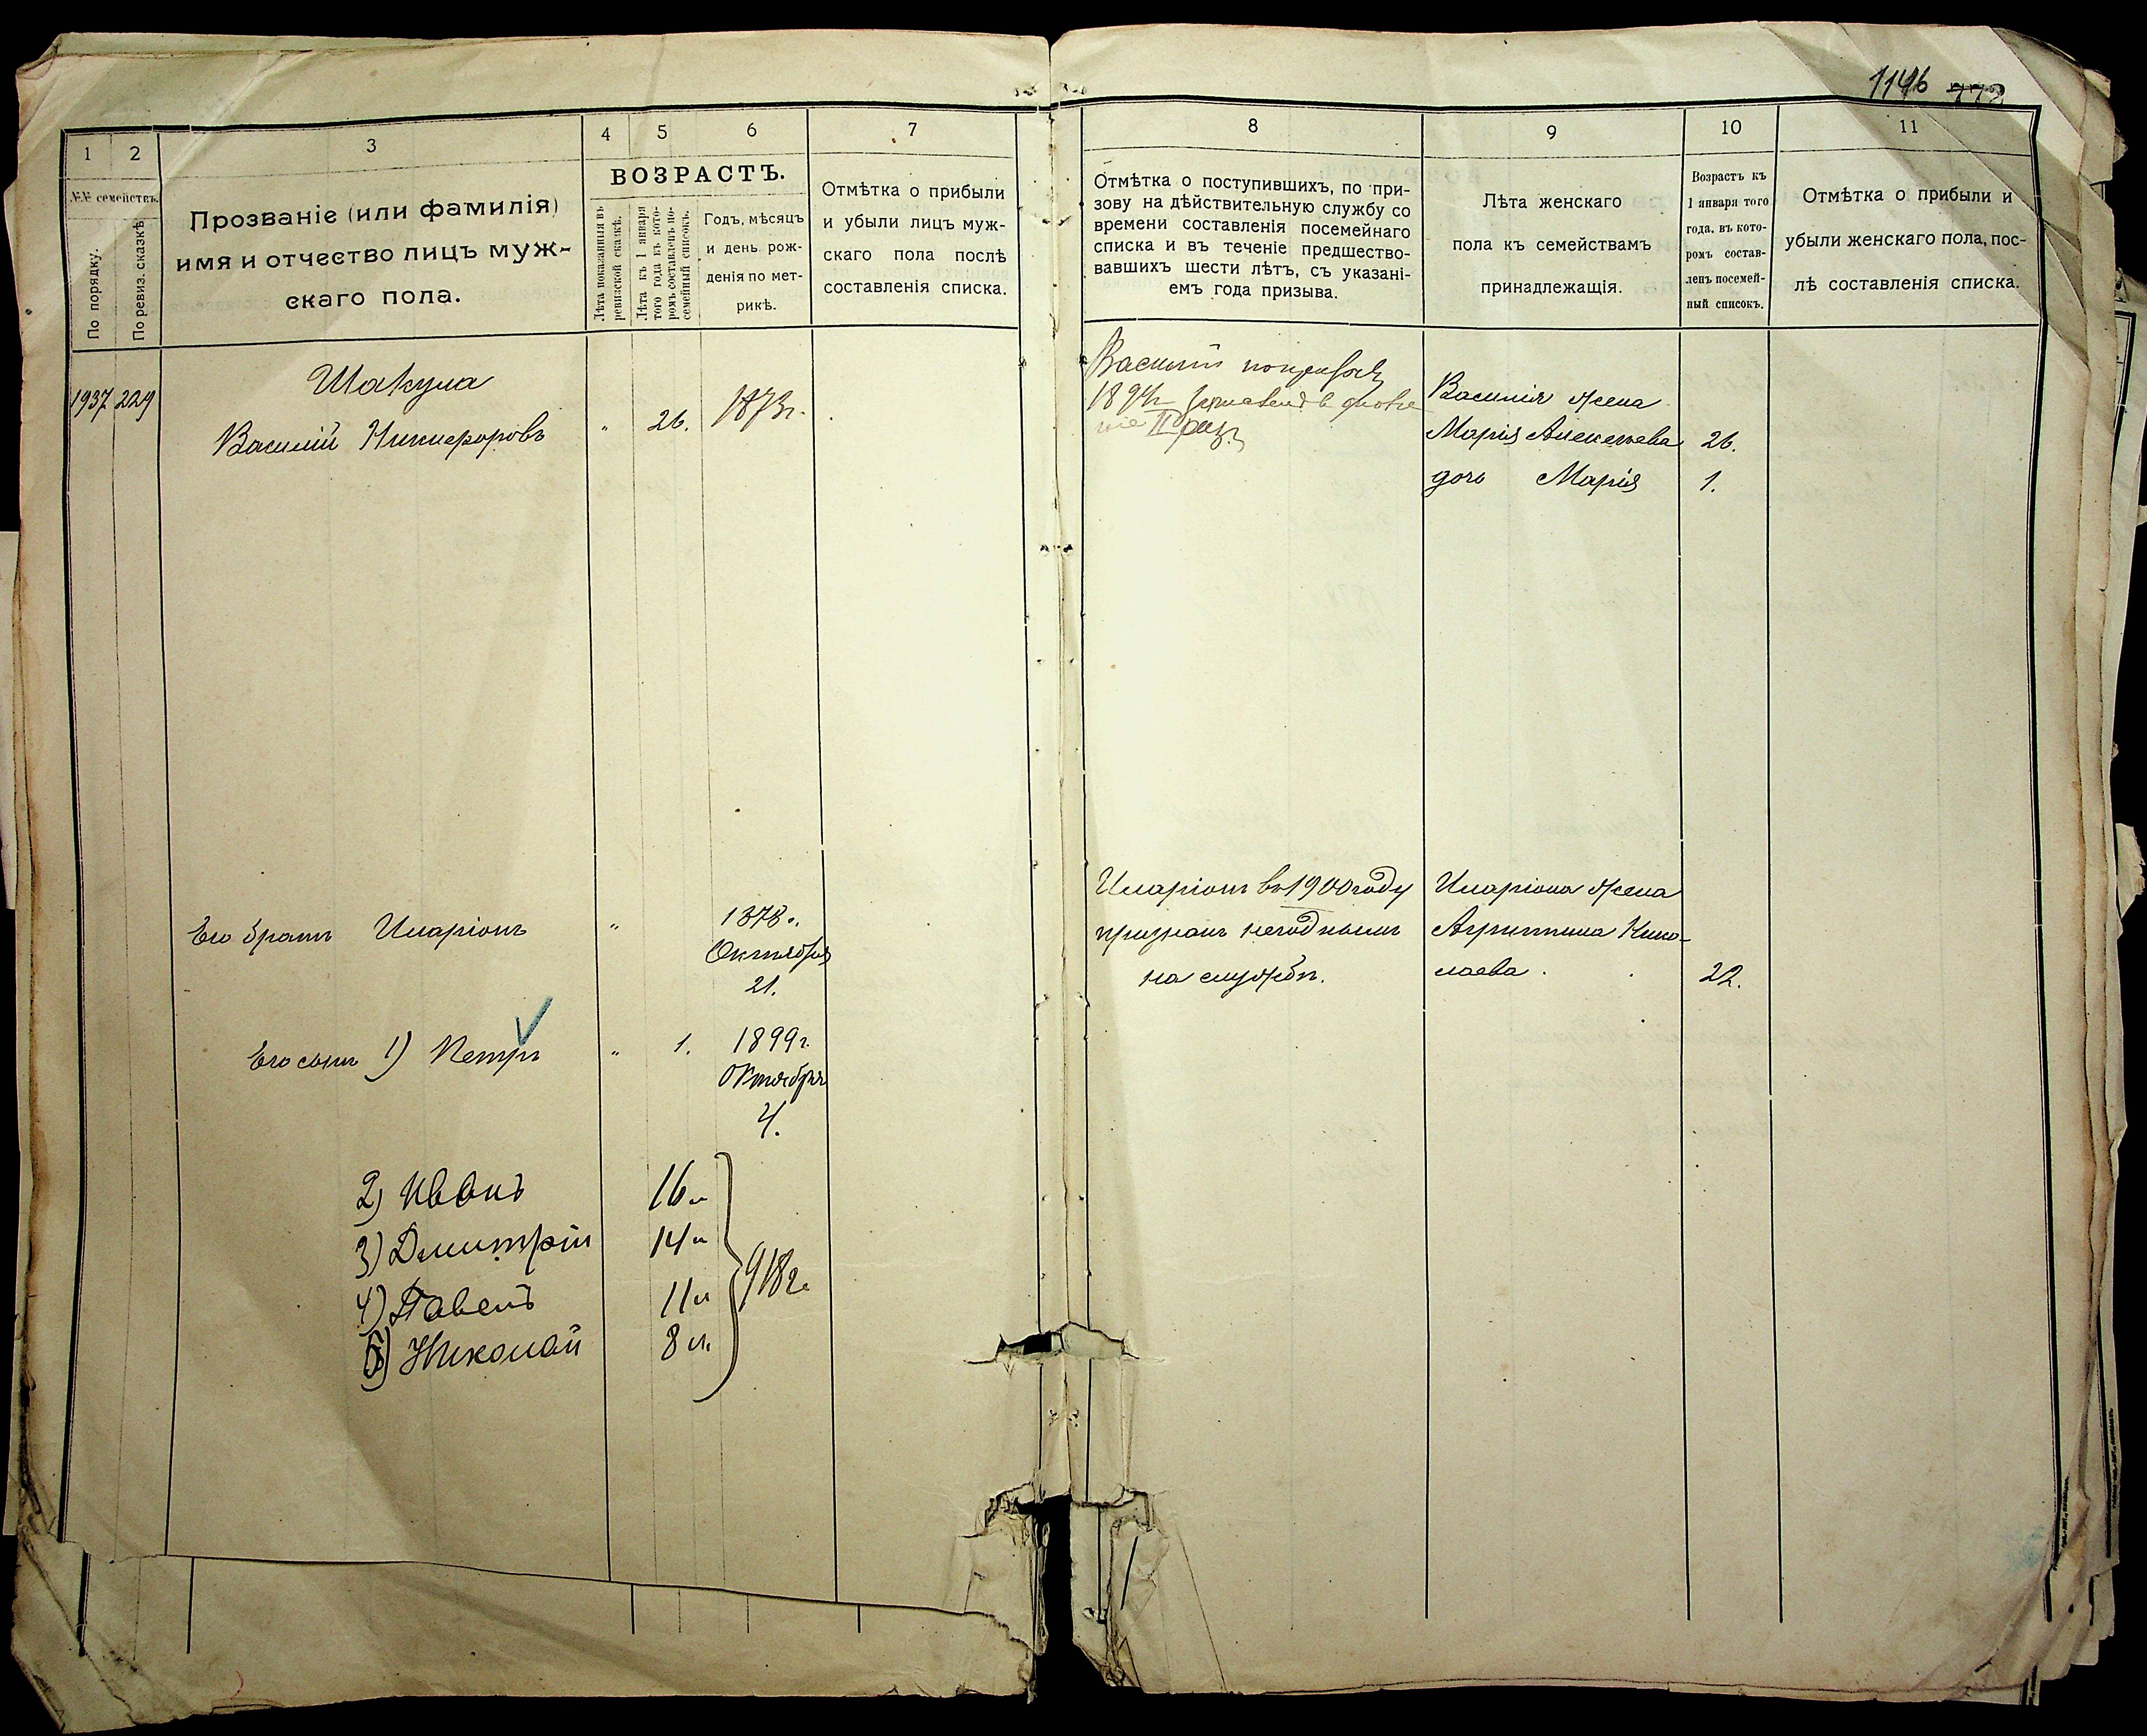 1146 773
1 2 3 4 5 6 7
№№ семействъ.
По порядку.
По ревиз. сказкѣ
Прозваніе (или фамилія)
имя и отчество лицъ муж-
скаго пола.
ВОЗРАСТЪ.
Лѣта показанныя въ
ревизской сказкѣ.
Лѣта къ 1 января
того года къ кото-
ромъ составленъ по-
семейный списокъ.
Годъ, мѣсяцъ
и день рож-
денія по мет-
рикѣ.
Отмѣтка о прибыли
и убыли лицъ муж-
скаго пола послѣ
составленія списка.
1937 229
Шакула
Василій Никифоровъ " 26. 1873г.
Его братъ Иларіонъ " 1878г.
Октября
21.
Его сынъ 1) Петръ " 1. 1899г.
Октября
4.
2) Иванъ 16л
3) Дмитрій 14л
4) Павелъ 11л
5) Николай 8л.
918г.
8 9 10 11
Отмѣтка о поступившихъ, по при-
зову на дѣйствительную службу со
времени составленія посемейнаго
списка и въ теченіе предшество-
вавшихъ шести лѣтъ, съ указані-
емъ года призыва.
Лѣта женскаго
пола къ семействамъ
принадлежащія.
Возрастъ къ
1 января того
года, въ кото-
ромъ состав-
ленъ посемей-
ный списокъ.
Отмѣтка о прибыли и
убыли женскаго пола, пос-
лѣ составленія списка.
Василій
1894г в
II раз.
Василія жена
Марія Алексѣева 26.
дочь Марія 1.
Иларіонъ въ 1900 году
признанъ негоднымъ
на службѣ.
Иларіона жена
Агрипина Нико-
лаева. 22.